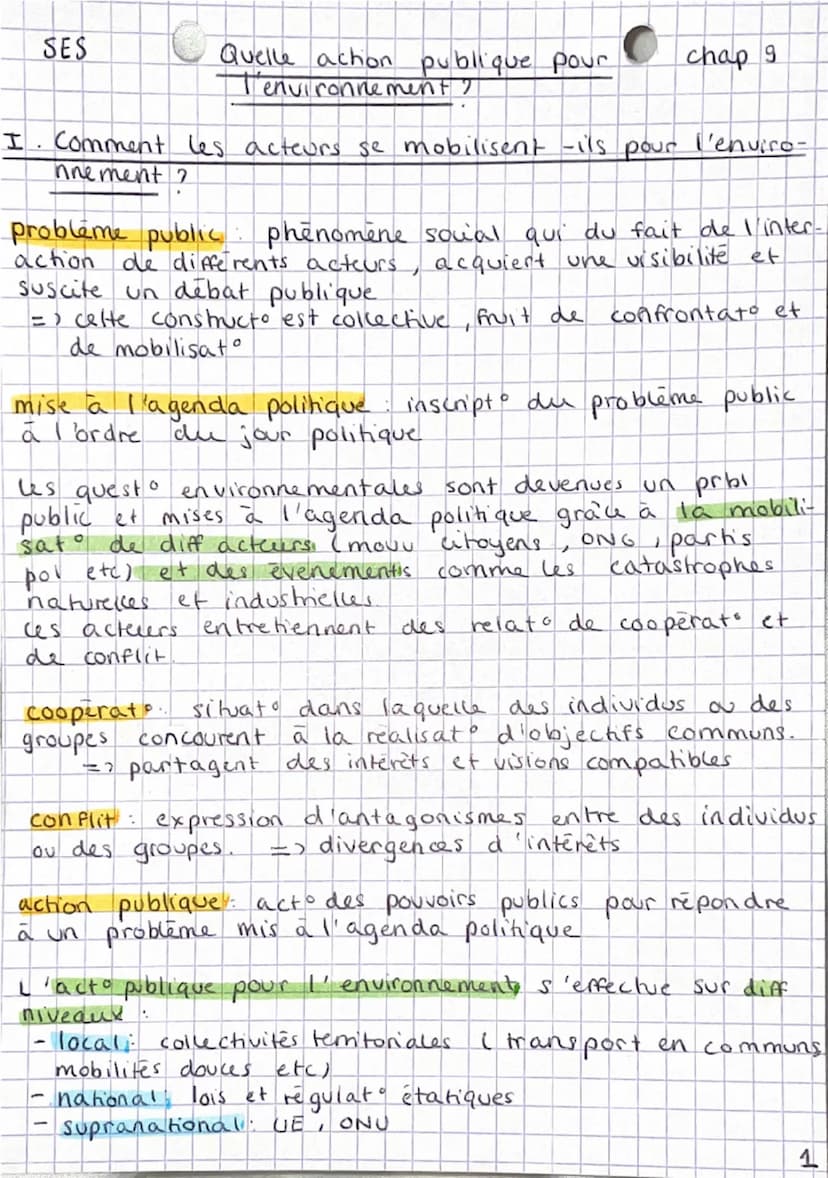 SES Quelle action publique pour chap 9
l'environnement ?
I. Comment les acteurs se mobilisent-ils pour l'enviro-
nnement ?
problème public : phénomène social qui du fait de l'inter-
action de différents acteurs, acquiert une visibilité et
suscite un débat publique
=> cette construct° est collective, fruit de confrontat° et
de mobilisat°
mise à l'agenda politique : inscript° du problème public
à l'ordre du jour politique
Les quest° environnementales sont devenues un prbl
public et mises à l'agenda politique grâce à la mobili-
sat° de diff acteurs (mouv citoyens, ONG, partis
pol etc) et des évenements comme les catastrophes
naturelles et industrielles.
Ces acteurs entretiennent des relat° de coopérat° et
de conflit.
coopérat° : situat° dans laquelle des individus ou des
groupes concourent à la réalisat° d'objectifs communs.
=> partagent des intérêts et visions compatibles
conflit : expression d'antagonismes entre des individus
ou des groupes. => divergences d'intérêts
action publique : act° des pouvoirs publics pour répondre
à un problème mis à l'agenda politique
L'act° publique pour l'environnement s'effectue sur diff
niveaux :
- local : collectivités territoriales (transport en communs,
mobilités douces etc)
- national : lois et régulat° étatiques
- supranational : UE, ONU
1